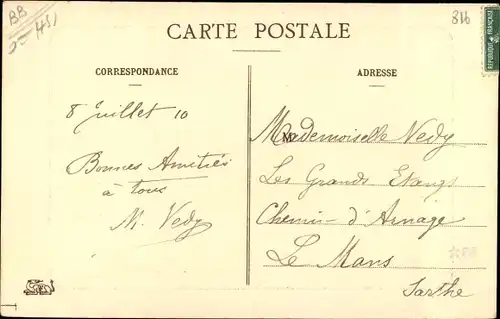 BB
816
CARTE POSTALE
RÉPUBLIQUE FRANÇAISE
CORRESPONDANCE
8 Juillet 10
Bonnes Amitiés
à tous
M. Vedy
ADRESSE
Mademoiselle Vedy
Les Grands Etangs
Chemin d'Arnage
Le Mans
Sarthe